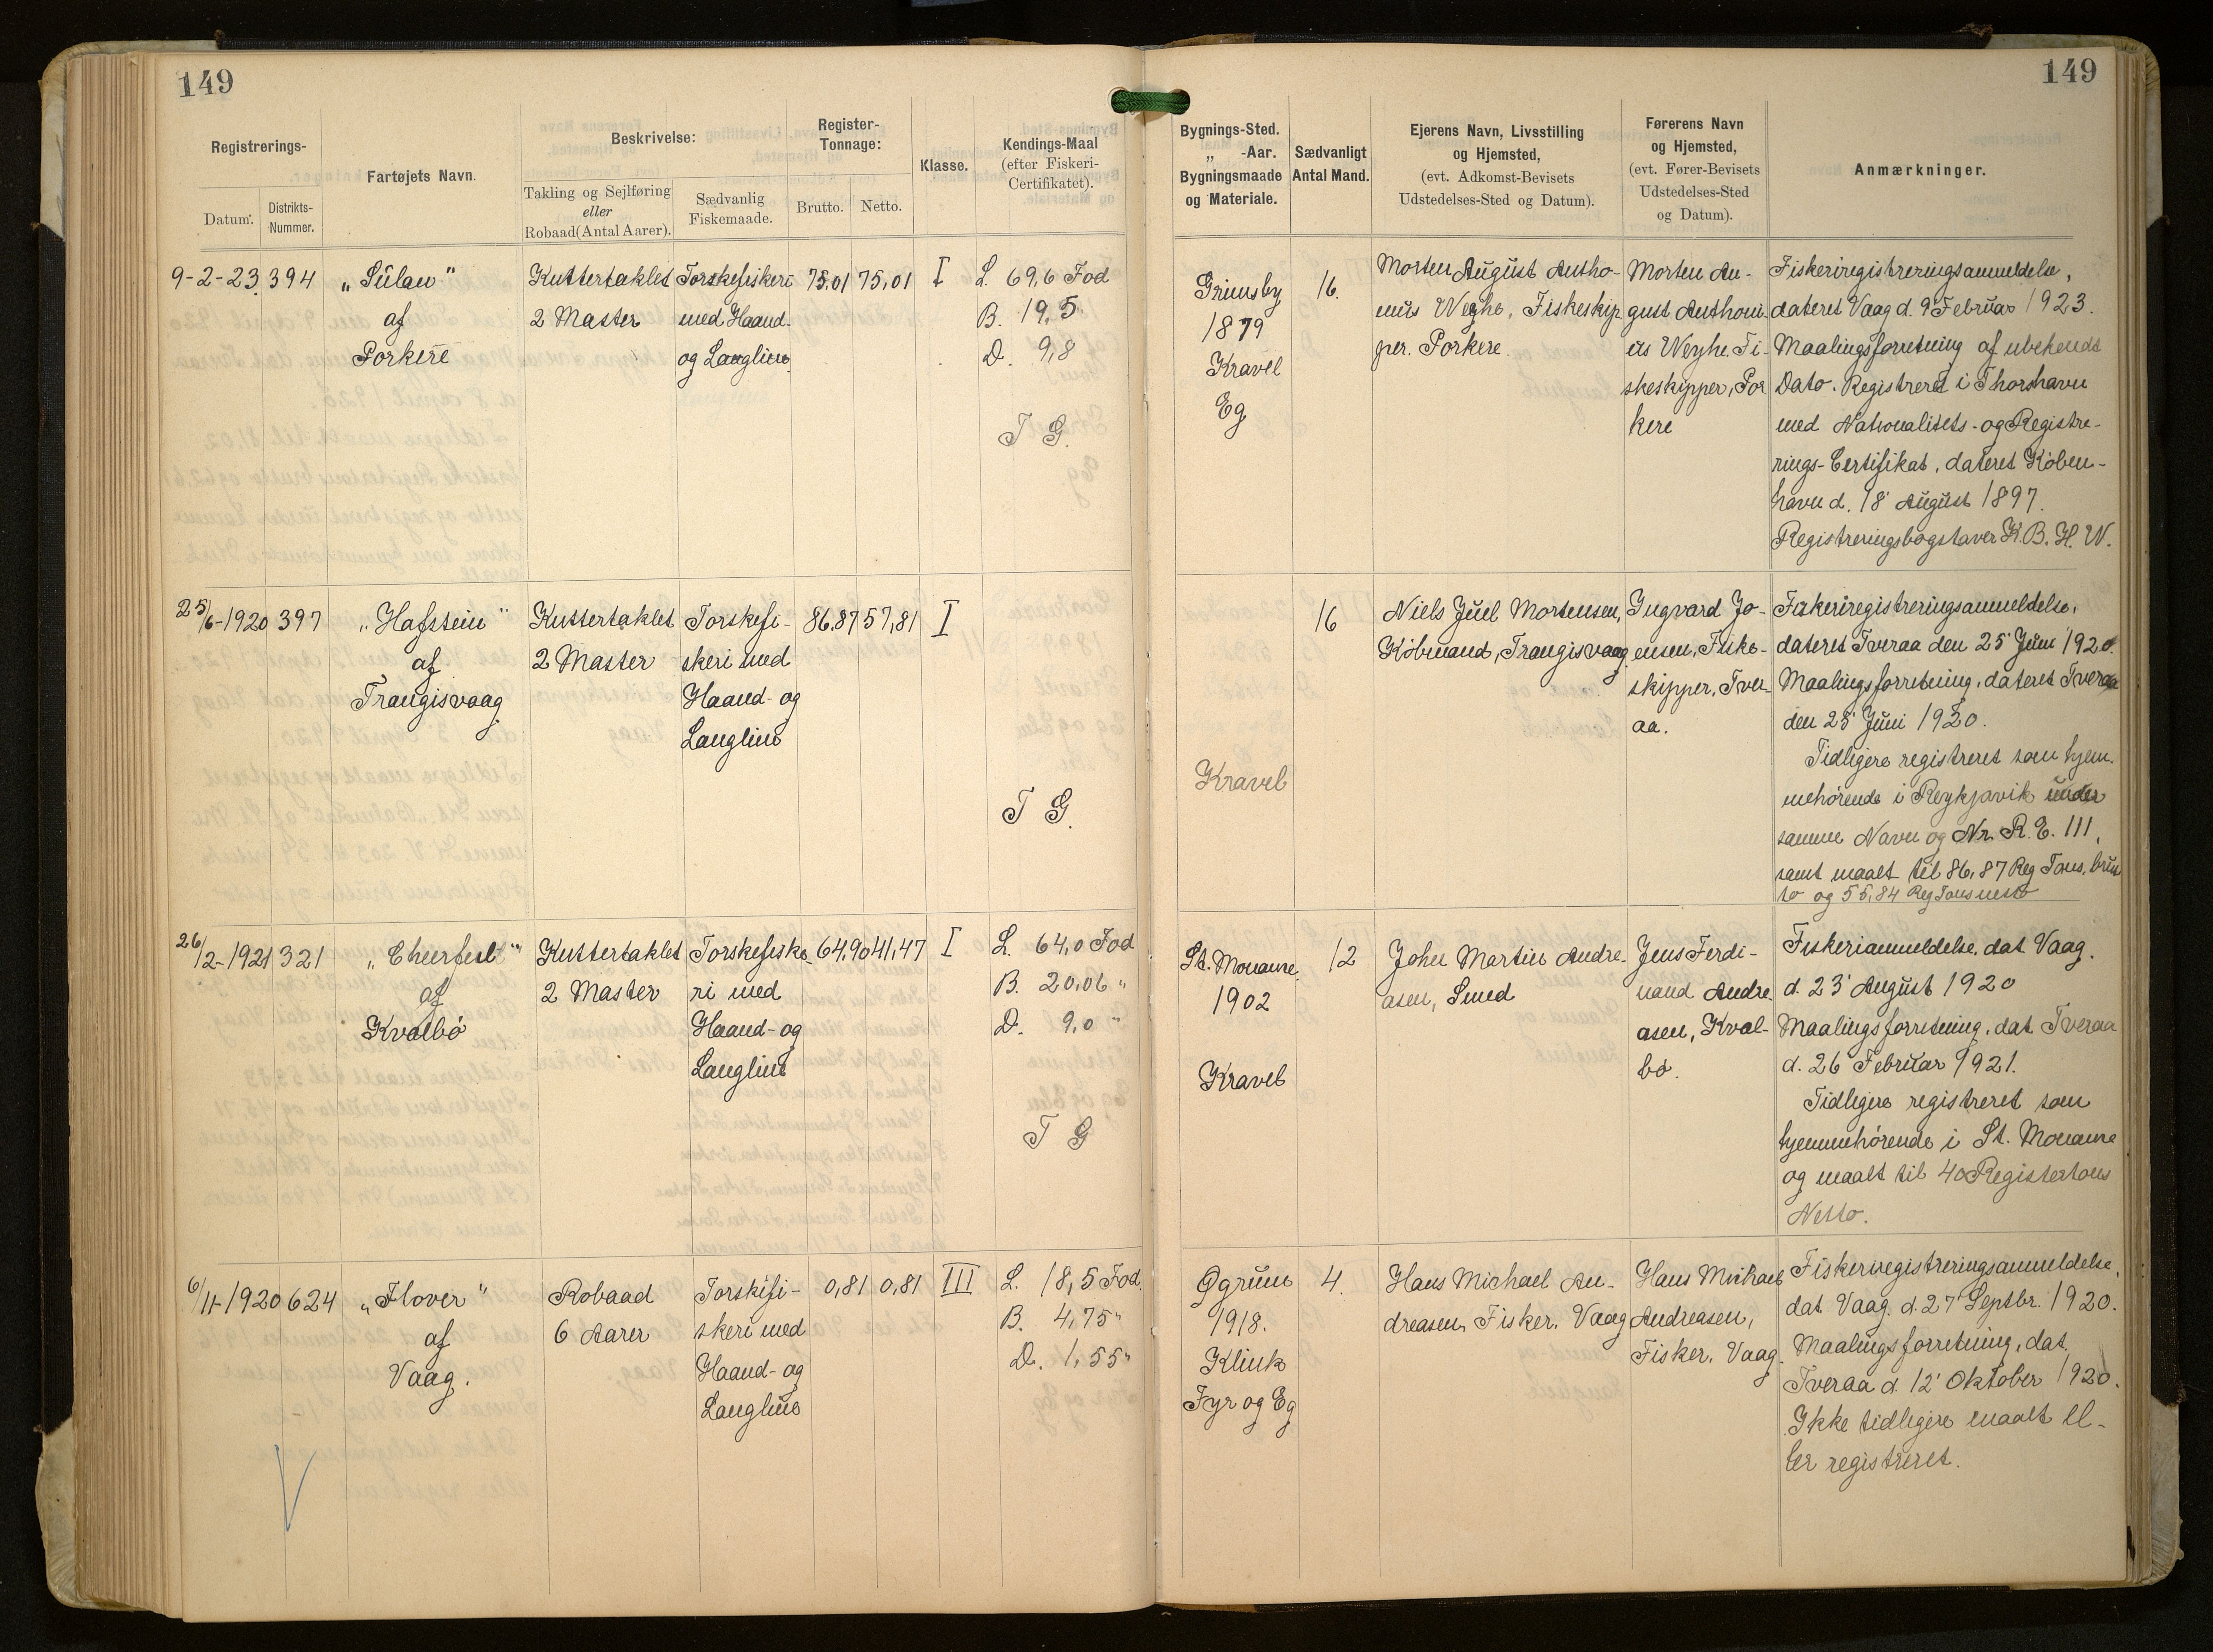 149
149
Registrerings-
Datum.
Distrikts-
Nummer.
Fartøjets Navn.
Beskrivelse:
Takling og Sejlføring
eller
Robaad (Antal Aarer).
Sædvanlig
Fiskemaade.
Register-
Tonnage:
Brutto.
Netto.
Klasse.
Kendings-Maal
(efter Fiskeri-
Certifikatet).
Bygnings-Sted.
„ -Aar.
Bygningsmaade
og Materiale.
Sædvanligt
Antal Mand.
Ejerens Navn, Livsstilling
og Hjemsted,
(evt. Adkomst-Bevisets
Udstedelses-Sted og Datum).
Førerens Navn
og Hjemsted,
(evt. Fører-Bevisets
Udstedelses-Sted
og Datum).
Anmærkninger.
9-2-23
394
„Sulan"
af
Porkere
Kuttertaklet
2 Master
Torskefiskeri
med Haand-
og Langline
75,01
75,01
I
L. 69,6 Fod
B. 19,5
D. 9,8
T G.
Grimsby
1879
Kravel
Eg
16.
Morten August Antho-
nius Weyhe, Fiskeskip-
per. Porkere.
Morten Au-
gust Anthoni-
us Weyhe. Fi-
skeskipper, Por
kere
Fiskeriregistreringsanmeldelse,
dateret Vaag d. 9' Februar 1923.
Maalingsforretning af ubekendt
Dato. Registreret i Thorshavn
med Nationalitets- og Registre-
rings-Certifikat, dateret Køben-
havn d. 18' August 1897.
Registreringsbogstaver K. B. H. W.
25/6-1920
397
„Hafstein"
af
Trangisvaag
Kuttertaklet
2 Master
Torskefi-
skeri med
Haand- og
Langline
86,87
57,81
I
T G.
Kravel
16
Niels Juel Mortensen,
Købmand, Trangisvaag
Ingvard Jo-
ensen, Fiske-
skipper, Tver-
aa.
Fiskeriregistreringsanmeldelse,
dateret Tveraa den 25' Juni 1920.
Maalingsforretning, dateret Tveraa
den 25' Juni 1920.
Tidligere registreret som hjem-
mehørende i Reykjavik under
samme Navn og Nr. R. E. 111,
samt maalt til 86,87 Reg Tons, brut
to og 55,84 Reg Tons netto
26/2-1921
321
„Cheerful"
af
Kvalbø
Kuttertaklet
2 Master
Torskefiske-
ri med
Haand- og
Langline
64,90
41,47
I
L. 64,0 Fod
B. 20,06 "
D. 9,0 "
T G
St. Monance
1902
Kravel
12
John Martin Andre-
asen, Smed
Jens Ferdi-
nand Andre
asen, Kval-
bø.
Fiskerianmeldelse, dat. Vaag.
d. 23' August 1920
Maalingsforretning, dat. Tveraa
d. 26' Februar 1921.
Tidligere registreret som
hjemmehørende i St. Monance
og maalt til 40 Registertons
Netto.
6/11-1920
624
„Flover"
af
Vaag.
Robaad
6 Aarer
Torskefi-
skeri med
Haand- og
Langline
0,81
0,81
III
L. 18,5 Fod.
B. 4,75 "
D. 1,55 "
1918.
Klink
Fyr og Eg
4.
Hans Michael An-
dreasen, Fisker. Vaag
Hans Michael
Andreasen,
Fisker. Vaag.
Fiskeriregistreringsanmeldelse,
dat. Vaag. d. 27' Septbr. 1920.
Maalingsforretning, dat.
Tveraa d. 12' Oktober 1920.
Ikke tidligere maalt el-
ler registreret.